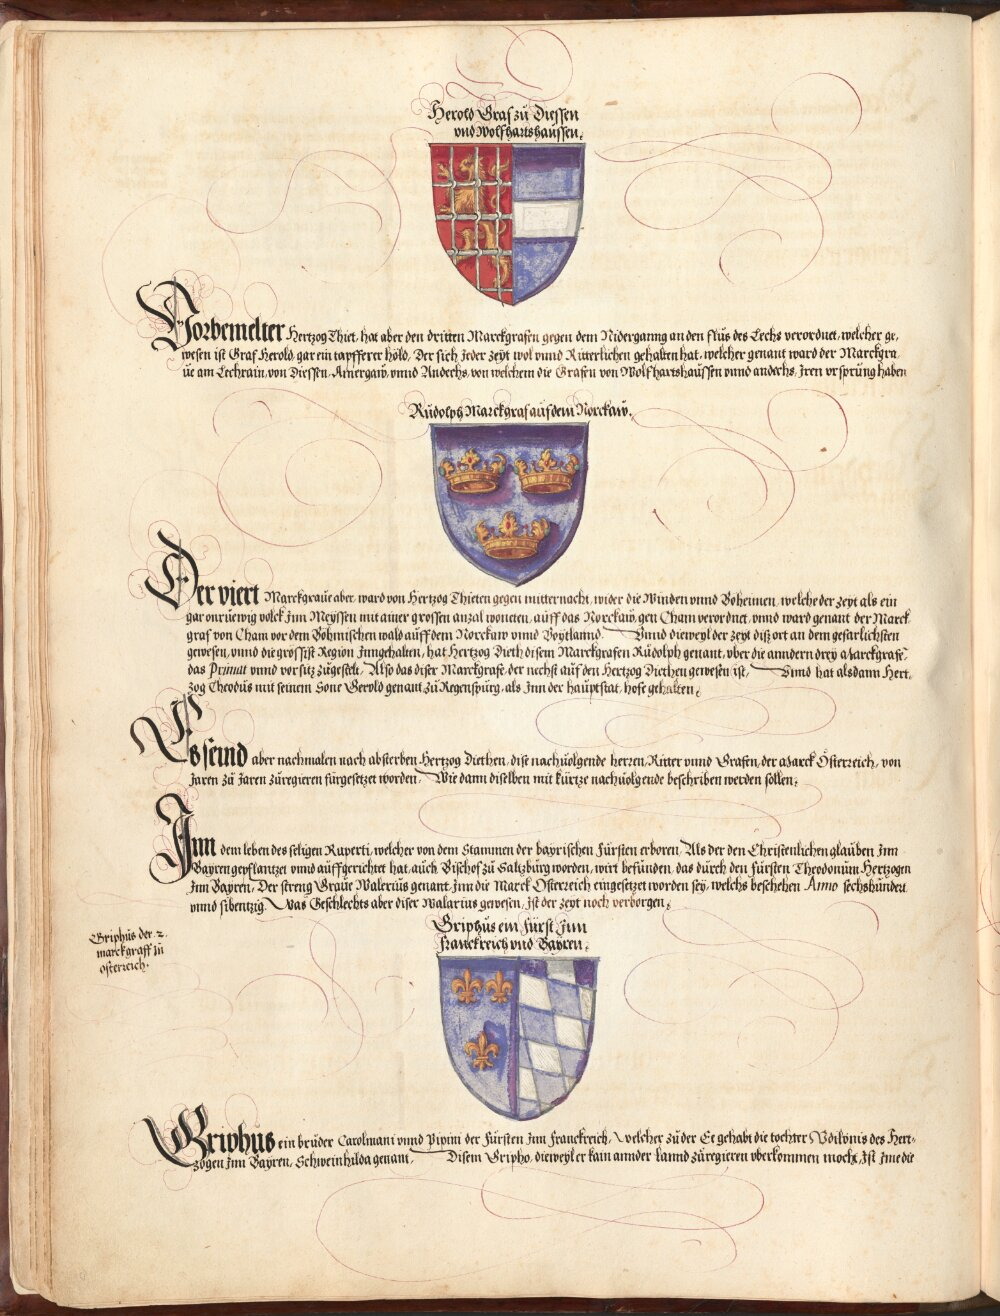 Herold Graf zů Diessen
vnd Wolfhartshaussen.
Vorbemelter Hertzog Thiet, hat aber den dritten Marckgrafen gegen dem Niderganng an den flus des Lechs verordnet, welcher ge,
wesen ist Graf Herold, gar ein tapfferer höld, Der sich Jeder zeyt wol vnnd Ritterlichen gehalten hat, welcher genant ward der Marckgra,
ue am Lechrain, von Diessen, Amergaw, vnnd Andechs, von welchem die Grafen von Wolfhartshaussen vnnd andechs, Jren vrsprung haben
Růdolph Marckgraf auf dem Norckaw.
Der viert Marckgraue aber, ward von Hertzog Thieten gegen mitternacht, wider die Winden vnnd Boheimen, welche der zeyt als ein
gar onrüewig volck Jnn Meyssen mit ainer grossen anzal woneten, auff das Norckaw, gen Cham verordnet, vnnd ward genant der Marck
graf von Cham vor dem Böhmischen wald auff dem Norckaw vnnd Voytlannd. Vnnd dieweyl der zeyt diß ort an dem gefarlichsten
gewesen, vnnd die grössist Region Jnngehalten, hat Hertzog Dieth disem Marckgrafen Růdolph genant, vber die anndern drey Marckgrafe,
das Primat vnnd vorsitz zůgestelt, Also das diser Marckgrafe, der nechst auf den Hertzog Diethen gewesen ist, Vnnd hat alsdann Hert,
zog Theodus mit seinem Sone Gerold genant zů Regenspurg, als Jnn der haůptstat, hofe gehalten.
Es seind aber nachmalen nach absterben Hertzog Diethen, dise nachuolgende herren, Ritter vnnd Grafen, der Marck Österreich, von
Jaren zů Jaren zůregieren fürgesetzet worden. Wie dann diselben mit kürtze nachuolgende beschriben werden sollen.
Jnn dem leben des seligen Ruperti, welcher von dem Stammen der bayrischen Fürsten erboren, Als der den Christenlichen glauben Jnn
Bayren gepflantzet vnnd auffgerichtet hat, auch Bischof zů Saltzburg worden, wirt befunden, das durch den Fürsten Theodonum Hertzogen
Jnn Bayren, Der streng Graue Walerius genant, Jnn die Marck Osterreich eingesetzet worden sey, welchs beschehen Anno sechshundert
vnnd sibentzig. Was Geschlechts aber diser Walarius gewesen, Jst der zeyt noch verborgen.
Griphus ein Fürst Jnn
Franckreich vnd Bayren.
Griphus der .2.
marckgraff zu
osterreich.
Griphus ein brůder Carolmani vnnd Pipini der Fürsten Jnn Franckreich, Welcher zů der Ee gehabt die tochter Vdilonis des Hert,
zogen Jnn Bayren, Schweinhilda genant, Disem Gripho, dieweyl er kain annder lannd zůregieren vberkommen mocht, Jst Jme die